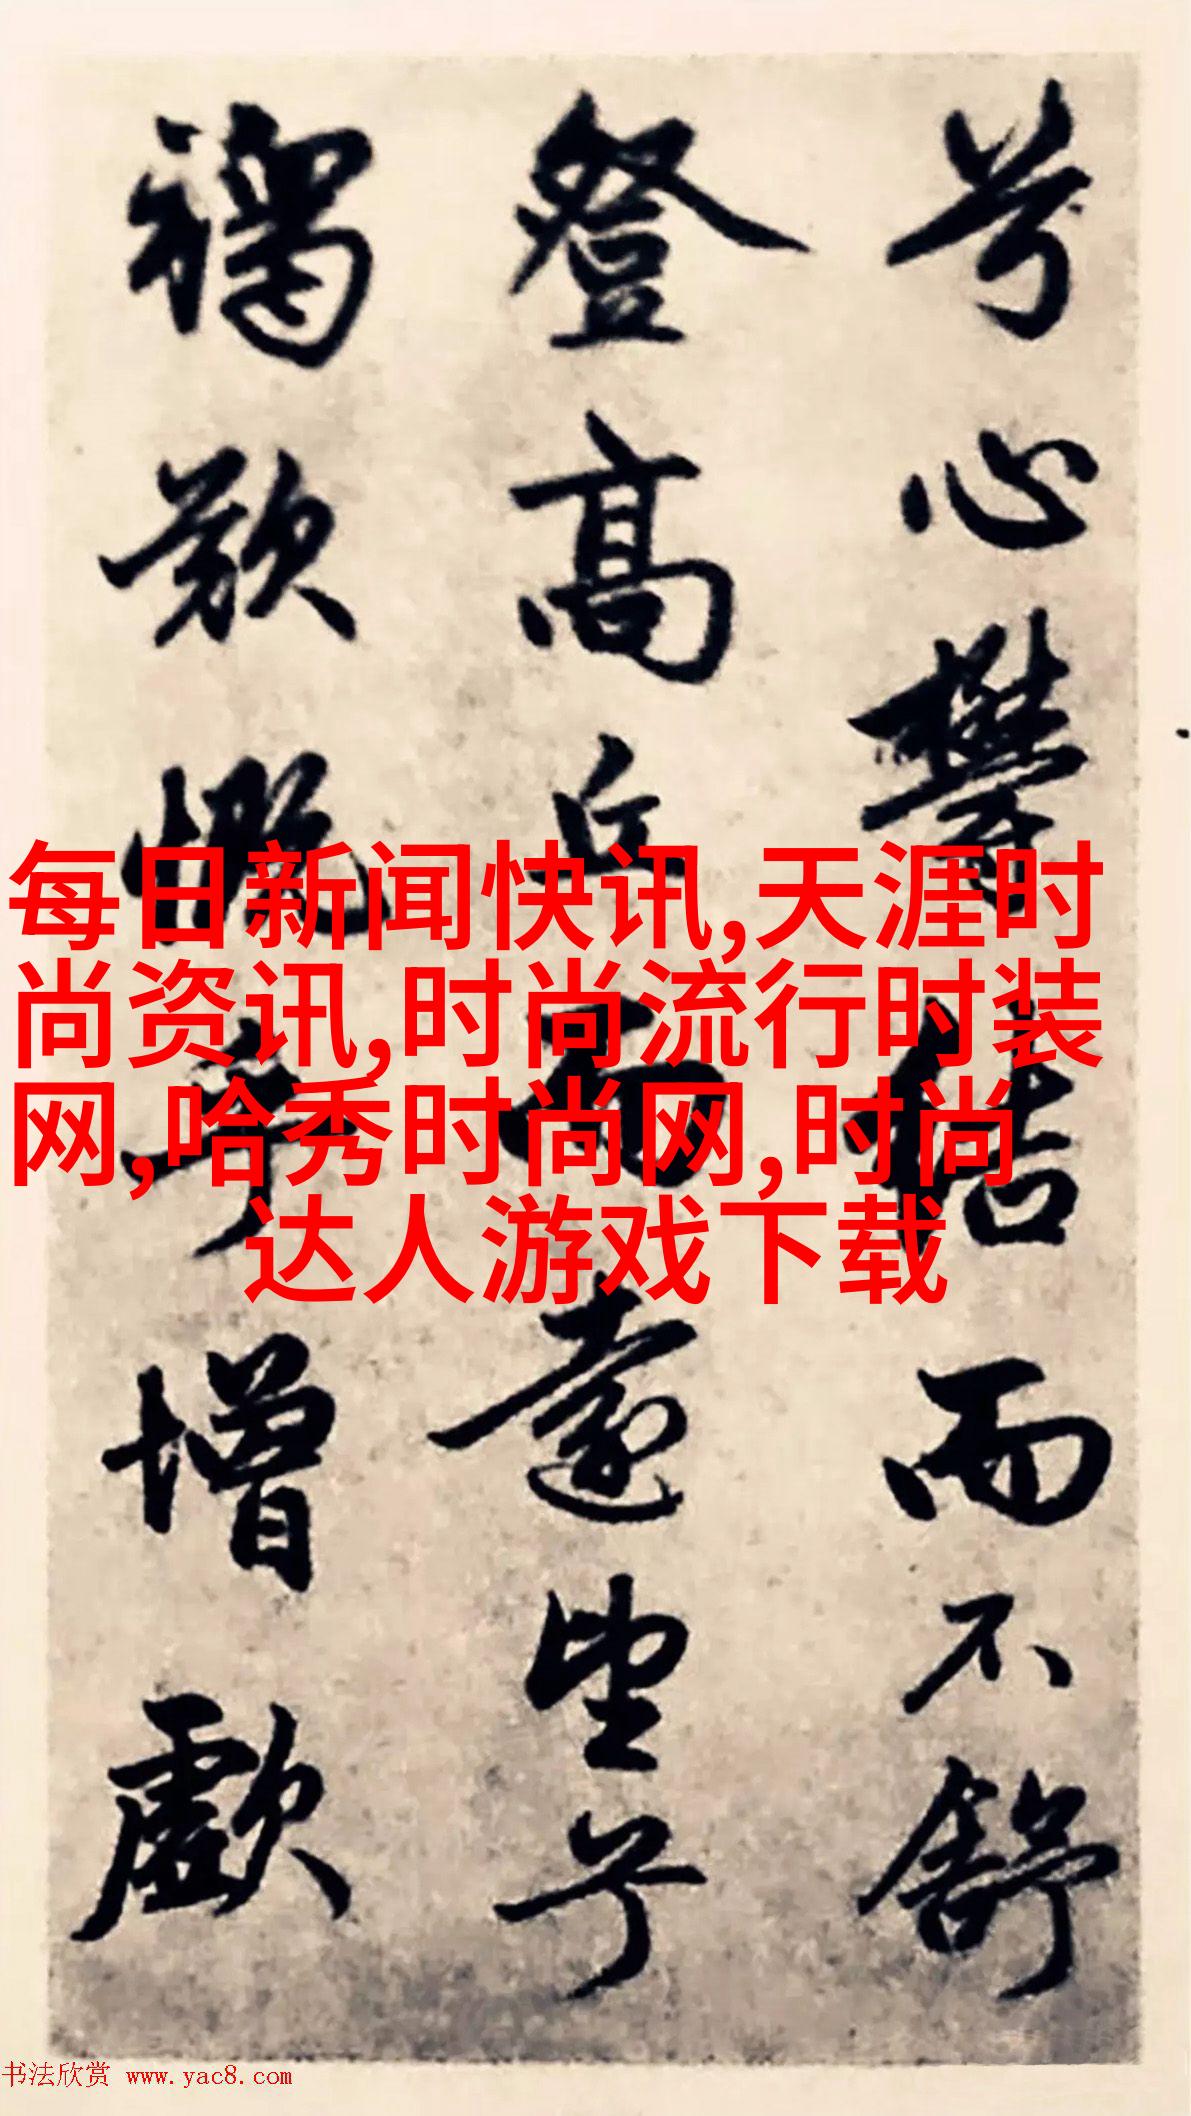 兮心鬱結而不舒
登高丘而遠望兮
歎慨增歔
每日新闻快讯,天涯时
尚资讯,时尚流行时装
网,哈秀时尚网,时尚
达人游戏下载
书法欣赏 www.yac8.com